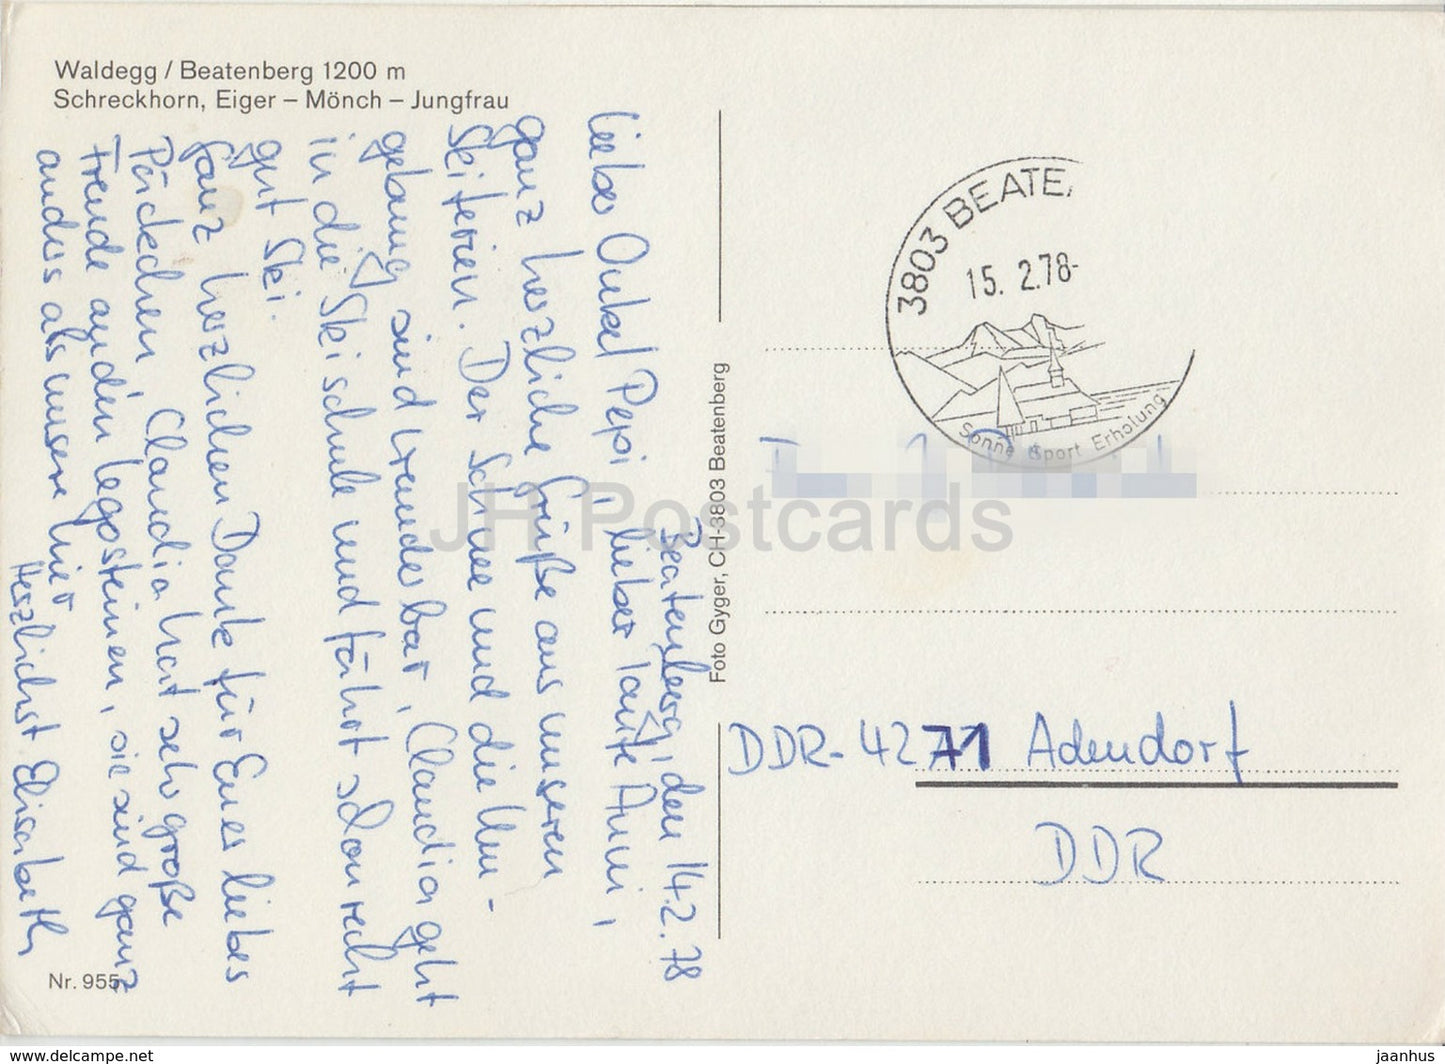 Waldegg / Beatenberg 1200 m
Schreckhorn, Eiger – Mönch – Jungfrau
Beatenberg, den 14.2.78
Lieber Onkel Pepi, lieber Tante Anni,
ganz herzliche Grüße aus unseren
Skiferien. Der Schnee und die Um-
gebung sind wunderbar, Claudia geht
in die Skischule und fährt schon recht
gut Ski.
Ganz herzlichen Dank für Euer liebes
Päckchen, Claudia hat sehr große
Freude an den Legosteinen, sie sind ganz
anders als unsere hier
Herzlichst Elisabeth
Nr. 955
Foto Gyger, CH-3803 Beatenberg
3803 BEATE
15. 2.78-
Sonne Sport Erholung
DDR-4271 Adendorf
DDR
JH Postcards
www.delcampe.net
jaanhus